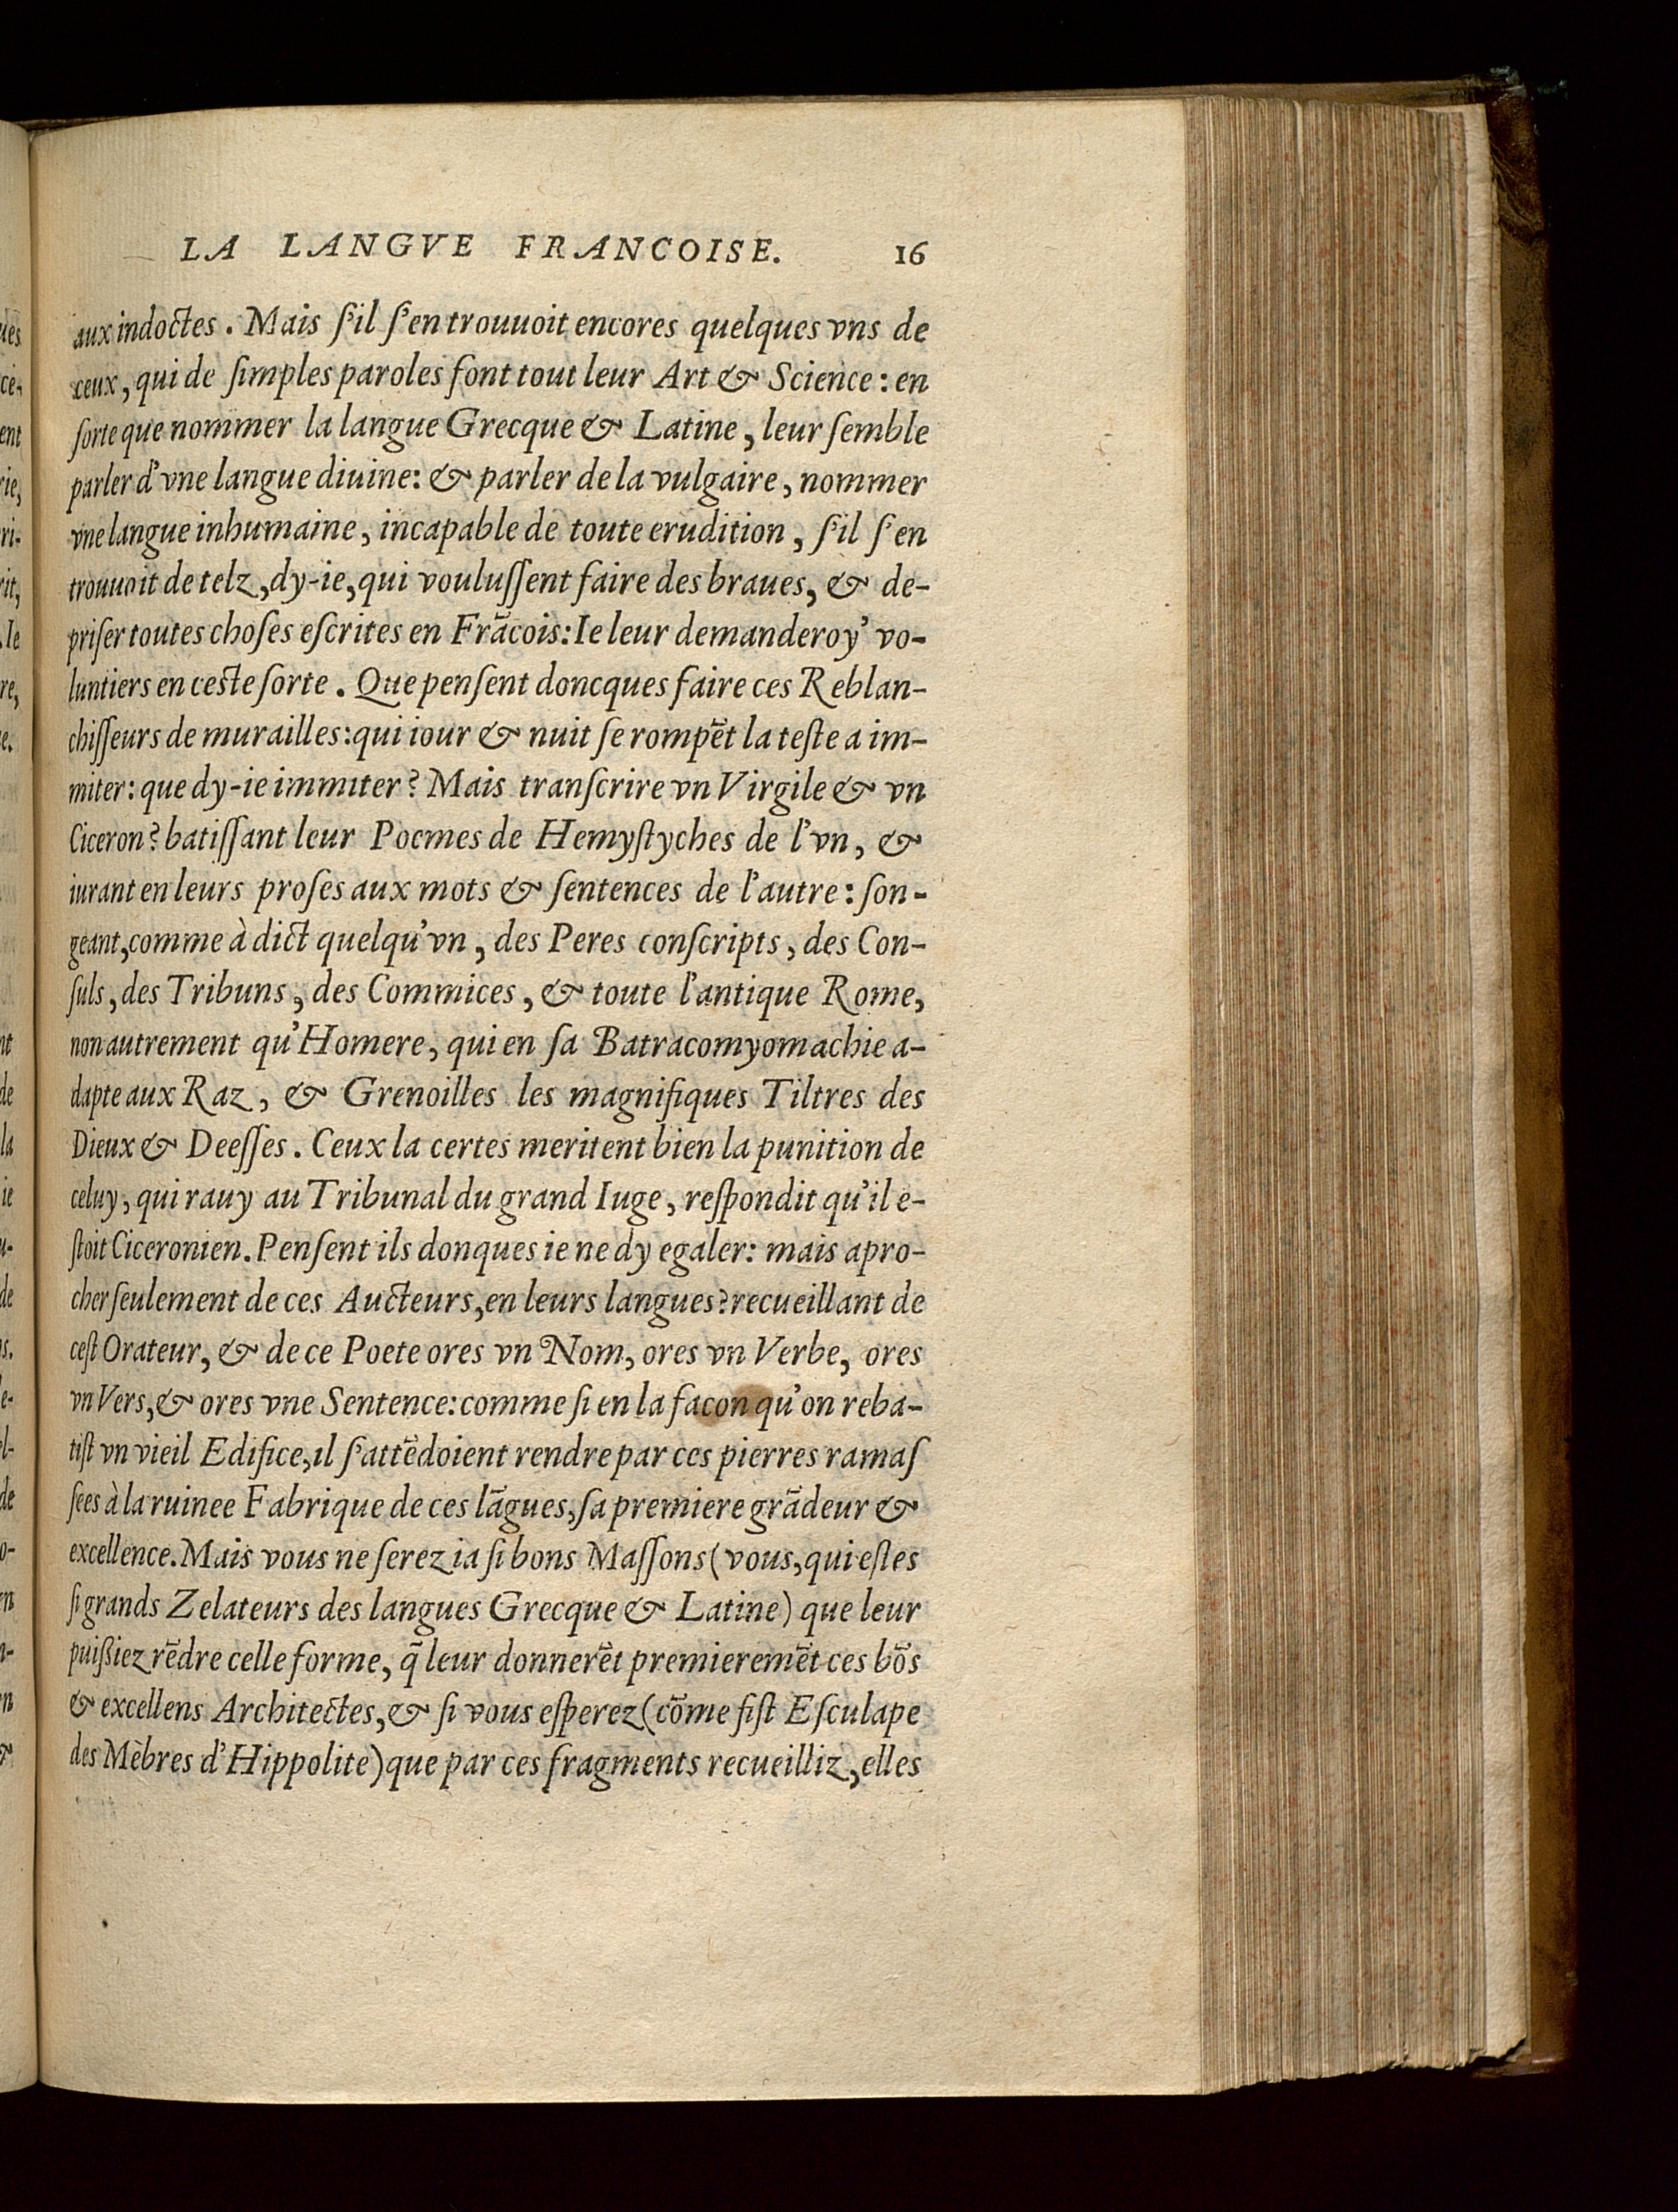 LA LANGVE FRANCOISE. 16
aux indoctes. Mais ſ'il ſ'en trouuoit encores quelques vns de
ceux, qui de ſimples paroles font tout leur Art & Science: en
ſorte que nommer la langue Grecque & Latine, leur ſemble
parler d'vne langue diuine: & parler de la vulgaire, nommer
vne langue inhumaine, incapable de toute erudition, ſ'il ſ'en
trouuoit de telz, dy-ie, qui vouluſſent faire des braues, & de-
priſer toutes choſes eſcrites en Frãcois: Ie leur demanderoy' vo-
luntiers en ceſte ſorte. Que penſent doncques faire ces Reblan-
chiſſeurs de murailles: qui iour & nuit ſe rompẽt la teſte a im-
miter: que dy-ie immiter? Mais tranſcrire vn Virgile & vn
Ciceron? batiſſant leur Poemes de Hemyſtyches de l'vn, &
iurant en leurs proſes aux mots & ſentences de l'autre: ſon-
geant, comme à dict quelqu'vn, des Peres conſcripts, des Con-
ſuls, des Tribuns, des Commices, & toute l'antique Rome,
non autrement qu'Homere, qui en ſa Batracomyomachie a-
dapte aux Raz, & Grenoilles les magnifiques Tiltres des
Dieux & Deeſſes. Ceux la certes meritent bien la punition de
celuy, qui rauy au Tribunal du grand Iuge, reſpondit qu'il e-
ſtoit Ciceronien. Penſent ils donques ie ne dy egaler: mais apro-
cher ſeulement de ces Aucteurs, en leurs langues? recueillant de
ceſt Orateur, & de ce Poete ores vn Nom, ores vn Verbe, ores
vn Vers, & ores vne Sentence: comme ſi en la facon qu'on reba-
tiſt vn vieil Edifice, il ſ'attẽdoient rendre par ces pierres ramaſ
ſees à la ruinee Fabrique de ces lãgues, ſa premiere grãdeur &
excellence. Mais vous ne ſerez ia ſi bons Maſſons (vous, qui eſtes
ſi grands Zelateurs des langues Grecque & Latine) que leur
puißiez rẽdre celle forme, q̃ leur donnerẽt premieremẽt ces bõs
& excellens Architectes, & ſi vous eſperez (cõme fiſt Eſculape
des Mẽbres d'Hippolite) que par ces fragments recueilliz, elles